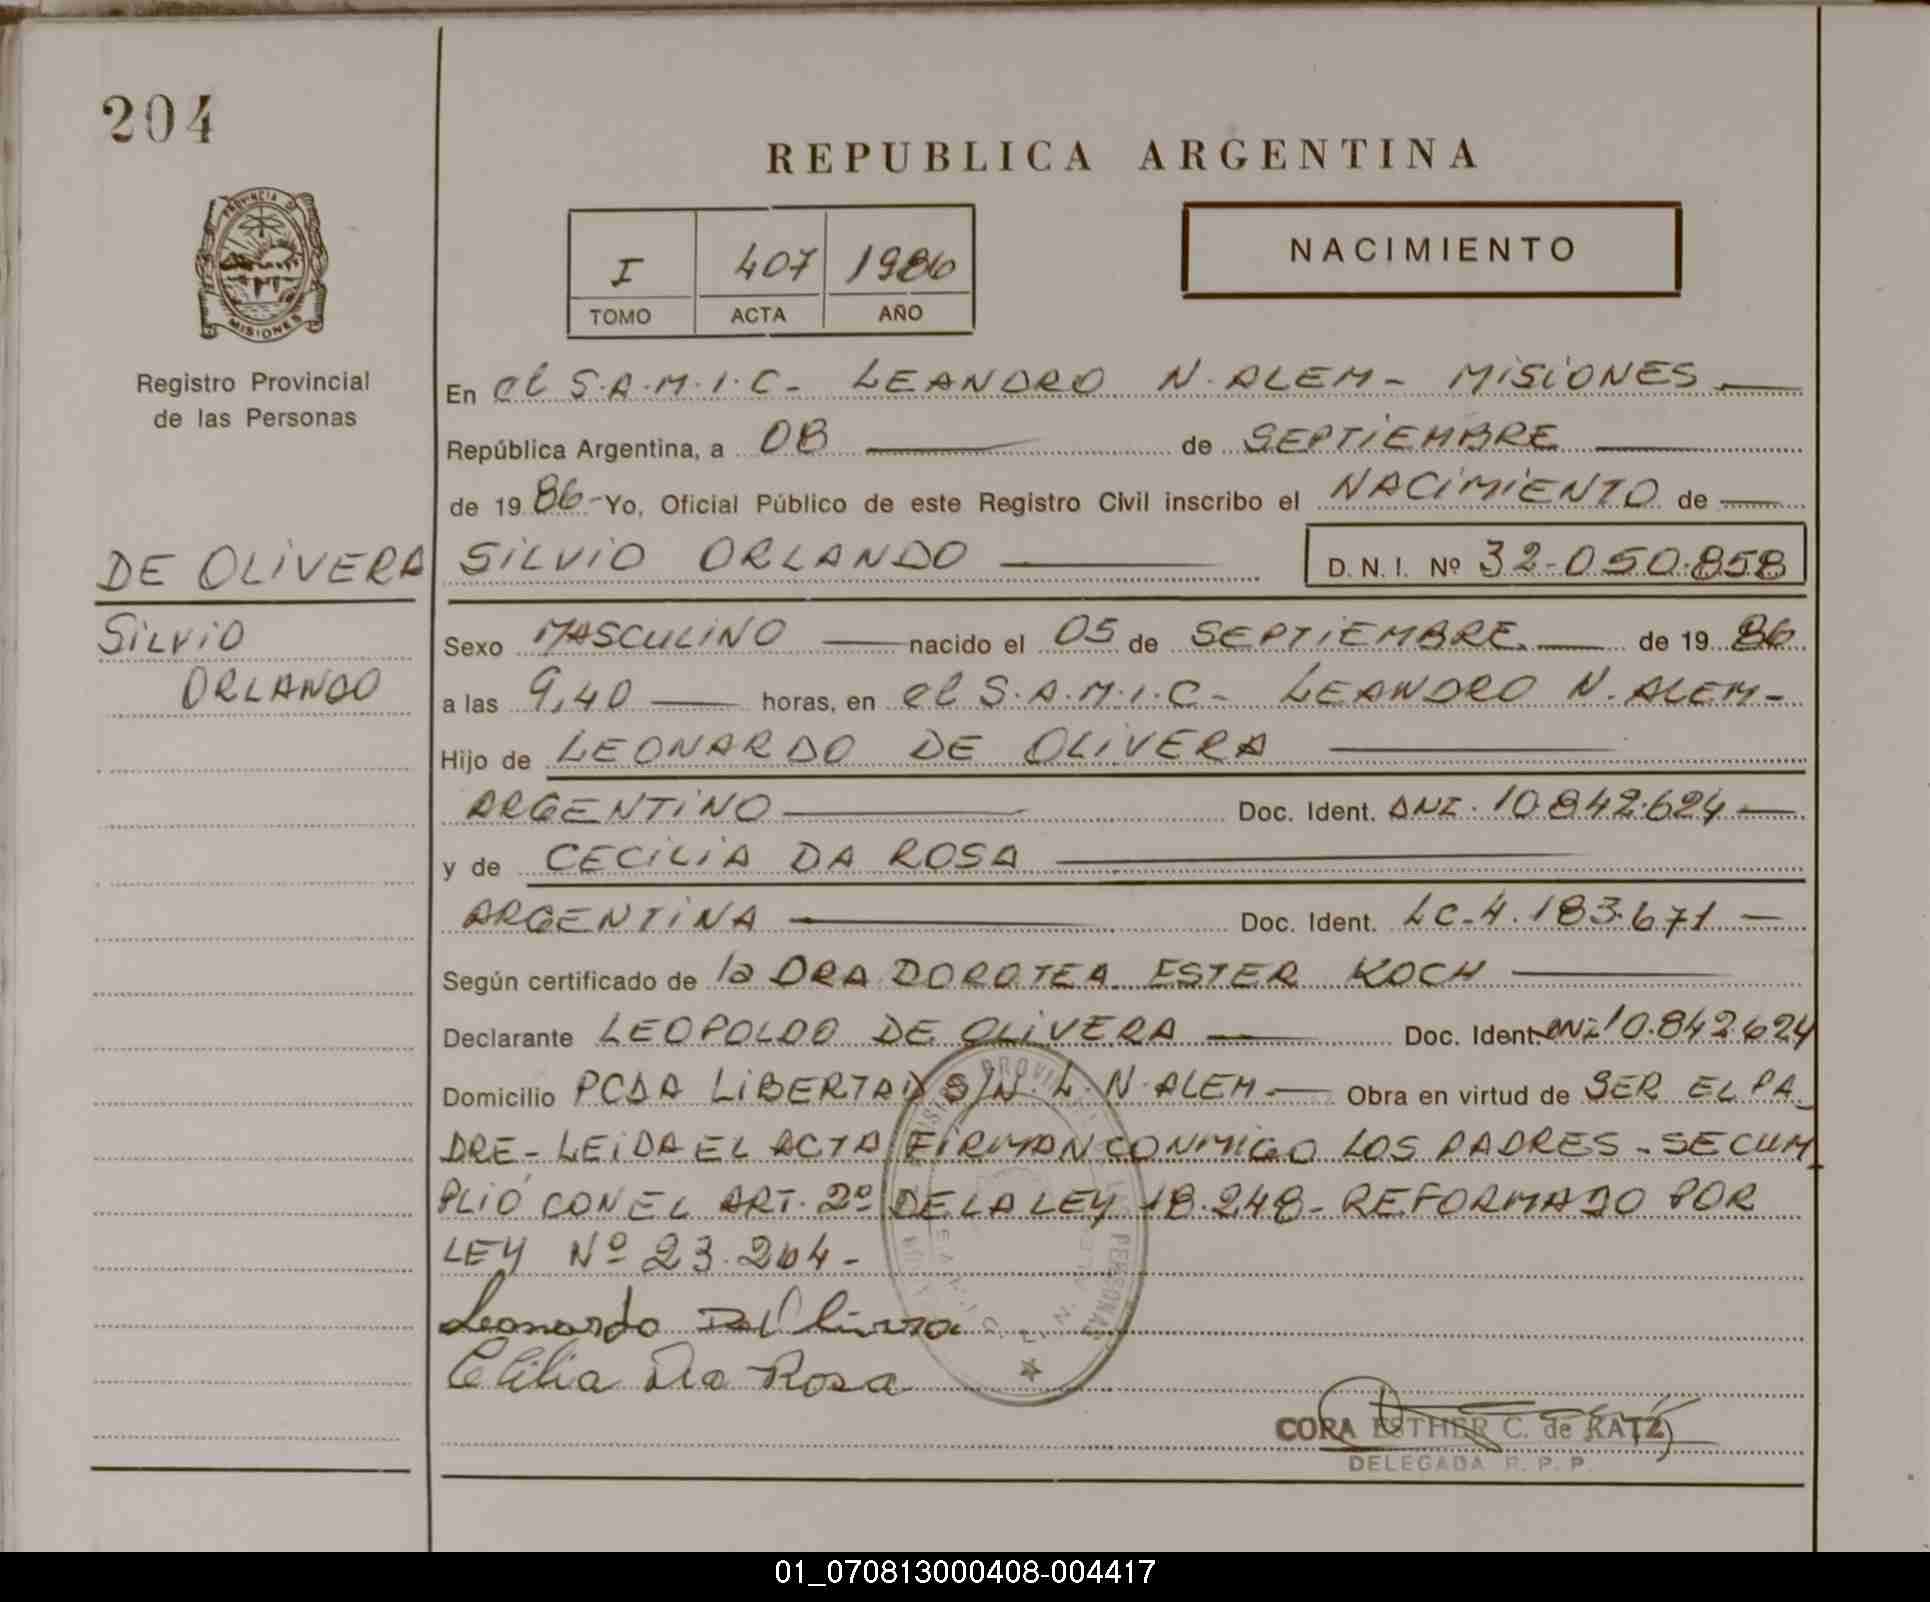 204
REPUBLICA ARGENTINA
PROVINCIA DE
MISIONES
I 407 1986
TOMO ACTA AÑO
NACIMIENTO
Registro Provincial
de las Personas
En el S.A.M.I.C- LEANDRO N. ALEM- MISIONES
República Argentina, a 08 de SEPTIEMBRE
de 19 86- Yo, Oficial Público de este Registro Civil inscribo el NACIMIENTO de
DE OLIVERA SILVIO ORLANDO D. N. I. Nº 32-050.858
SILVIO
ORLANDO
Sexo MASCULINO nacido el 05 de SEPTIEMBRE. de 19 86.
a las 9,40 horas, en el S.A.M.I.C- LEANDRO N. ALEM-
Hijo de LEONARDO DE OLIVERA
ARGENTINO Doc. Ident. DNI. 10.842.624
y de CECILIA DA ROSA
ARGENTINA Doc. Ident. LC-4.183.671
Según certificado de la DRA DOROTEA ESTER KOCH
Declarante LEOPOLDO DE OLIVERA Doc. Ident. DNI 10.842.624
Domicilio PCDA LIBERTAD S/N. L. N. ALEM- Obra en virtud de SER EL PA_
DRE- LEIDA EL ACTA FIRMAN CONMIGO LOS PADRES - SE CUM_
PLIÓ CON EL ART. 2º DE LA LEY 18.248- REFORMADO POR
LEY Nº 23.264-
Leonardo De Olivera
Cecilia Da Rosa
CORA ESTHER C. de KATZ
DELEGADA R. P. P.
01_070813000408-004417